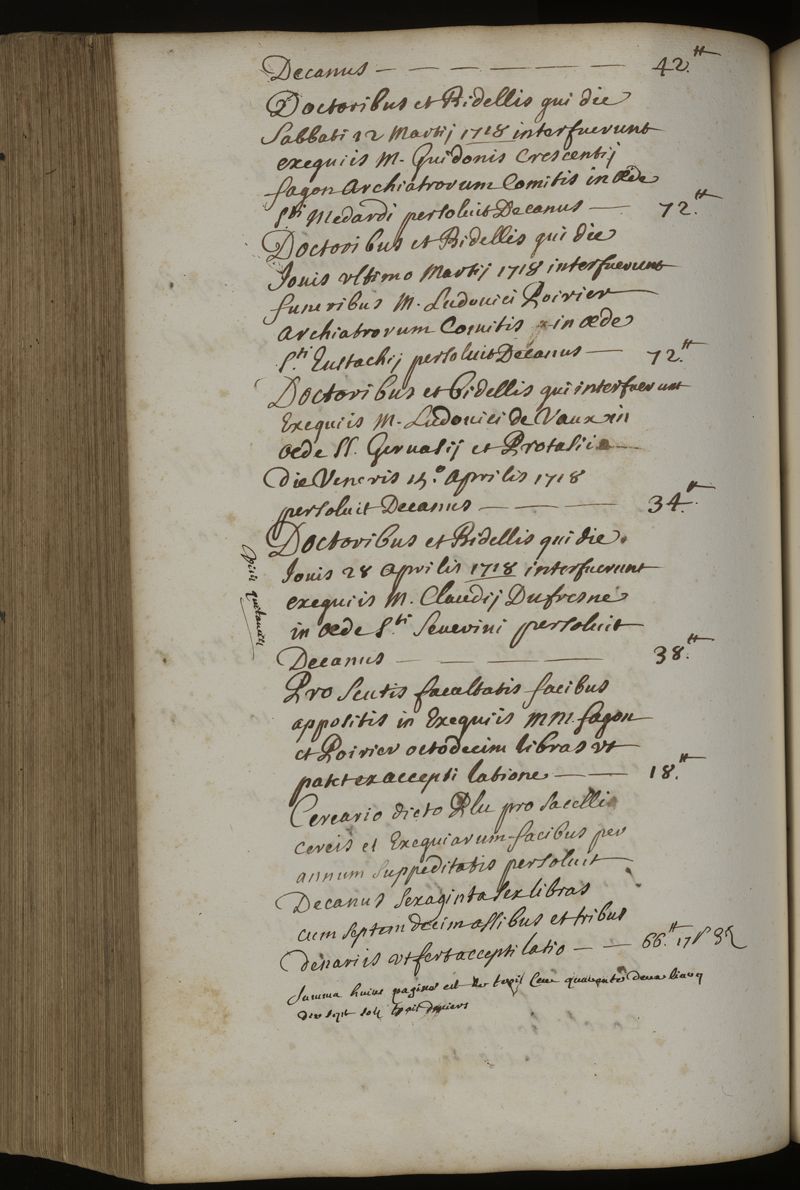 Decanus — — — — — — 42.ᵗᵗ
Doctoribus et Bidellis qui die
Sabbati 12 Martij 1718 interfuerunt
exequiis M. Guidonis Crescentij
fagon Archiatrorum Comitis in æde
S.ti Medardi persoluit Decanus — 72.ᵗᵗ
Doctoribus et Bidellis qui die
Jouis vltimo Martij 1718 interfuerunt
funeribus M. Ludouici Poirier
Archiatrorum Comitis in æde
S.ti Eustachij persoluit Decanus — 72.ᵗᵗ
Doctoribus et bidellis qui interfuerunt
Exequiis M. Ludouici de Vaux in
œde SS. Geruasij et Protasii
die Veneris 15.° Aprilis 1718
persoluit Decanus — — — 34.ᵗᵗ
Doctoribus et Bidellis qui die
Jouis 28 Aprilis 1718 interfuerunt
exequiis M. Claudij Dufresne
in œde S.ti Seuerini persoluit
Decanus — — — — 38.ᵗᵗ
Pro Scutis facultatis facibus
appositis in Exequiis MM. fagon
et Poirier octodecim libras vt
patet ex accepti latione — — 18.ᵗᵗ
Cereario dicto Plu pro Sacelli
cereis et Exequiarum facibus per
annum Suppeditatis persoluit
Decanus Sexaginta Sex libras
cum Septem decim assibus et tribus
denariis vt fert accepti latio — — 66.ᵗᵗ 17ˢ 3ᵈ
Summa huius paginæ est Trois Cent quarante deux liures
dix sept sols trois deniers